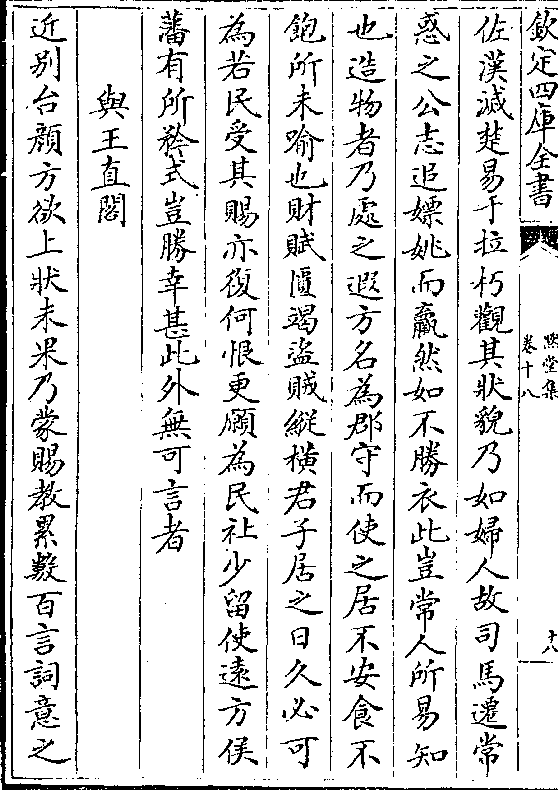 欽定四庫全書
默堂集
卷十八
十八
佐漢滅楚易于拉朽觀其狀貌乃如婦人故司馬遷常
惑之公志追嫖姚而羸然如不勝衣此豈常人所易知
也造物者乃處之遐方名為郡守而使之居不安食不
飽所未喻也財賦匱竭盜賊縱橫君子居之日久必可
為若民受其賜亦復何恨更願為民社少留使遠方侯
藩有所矜式豈勝幸甚此外無可言者
與王直閣
近别台顔方欲上狀未果乃蒙賜教累數百言詞意之